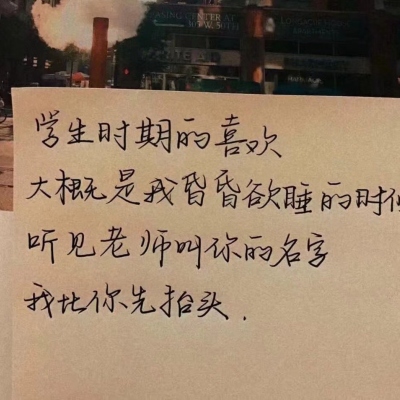 AGING CENTER AT
30 W. 50TH
学生时期的喜欢
大概是我昏昏欲睡的时候
听见老师叫你的名字
我比你先抬头.